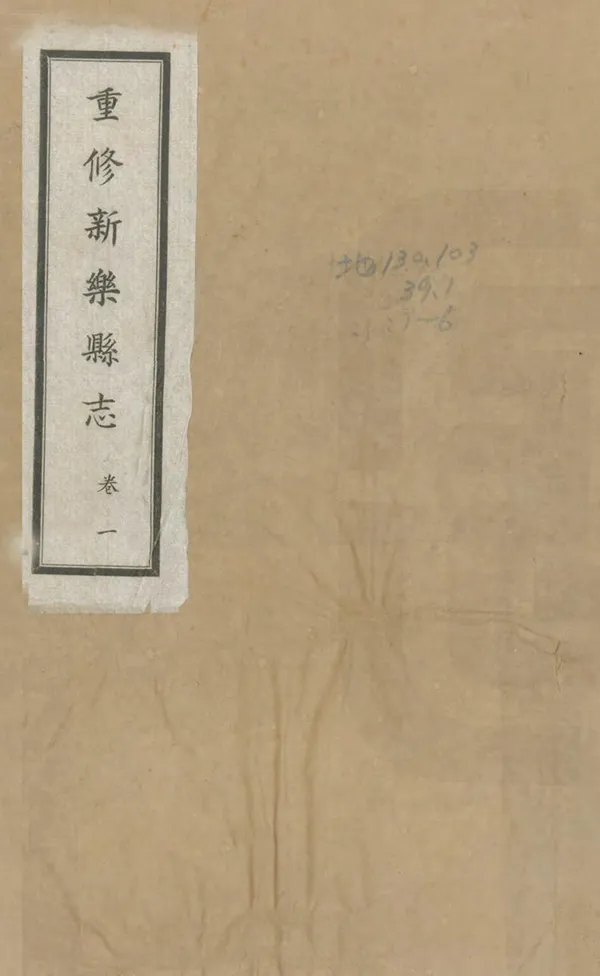 重修新樂縣志
卷一
地130.103
39.1